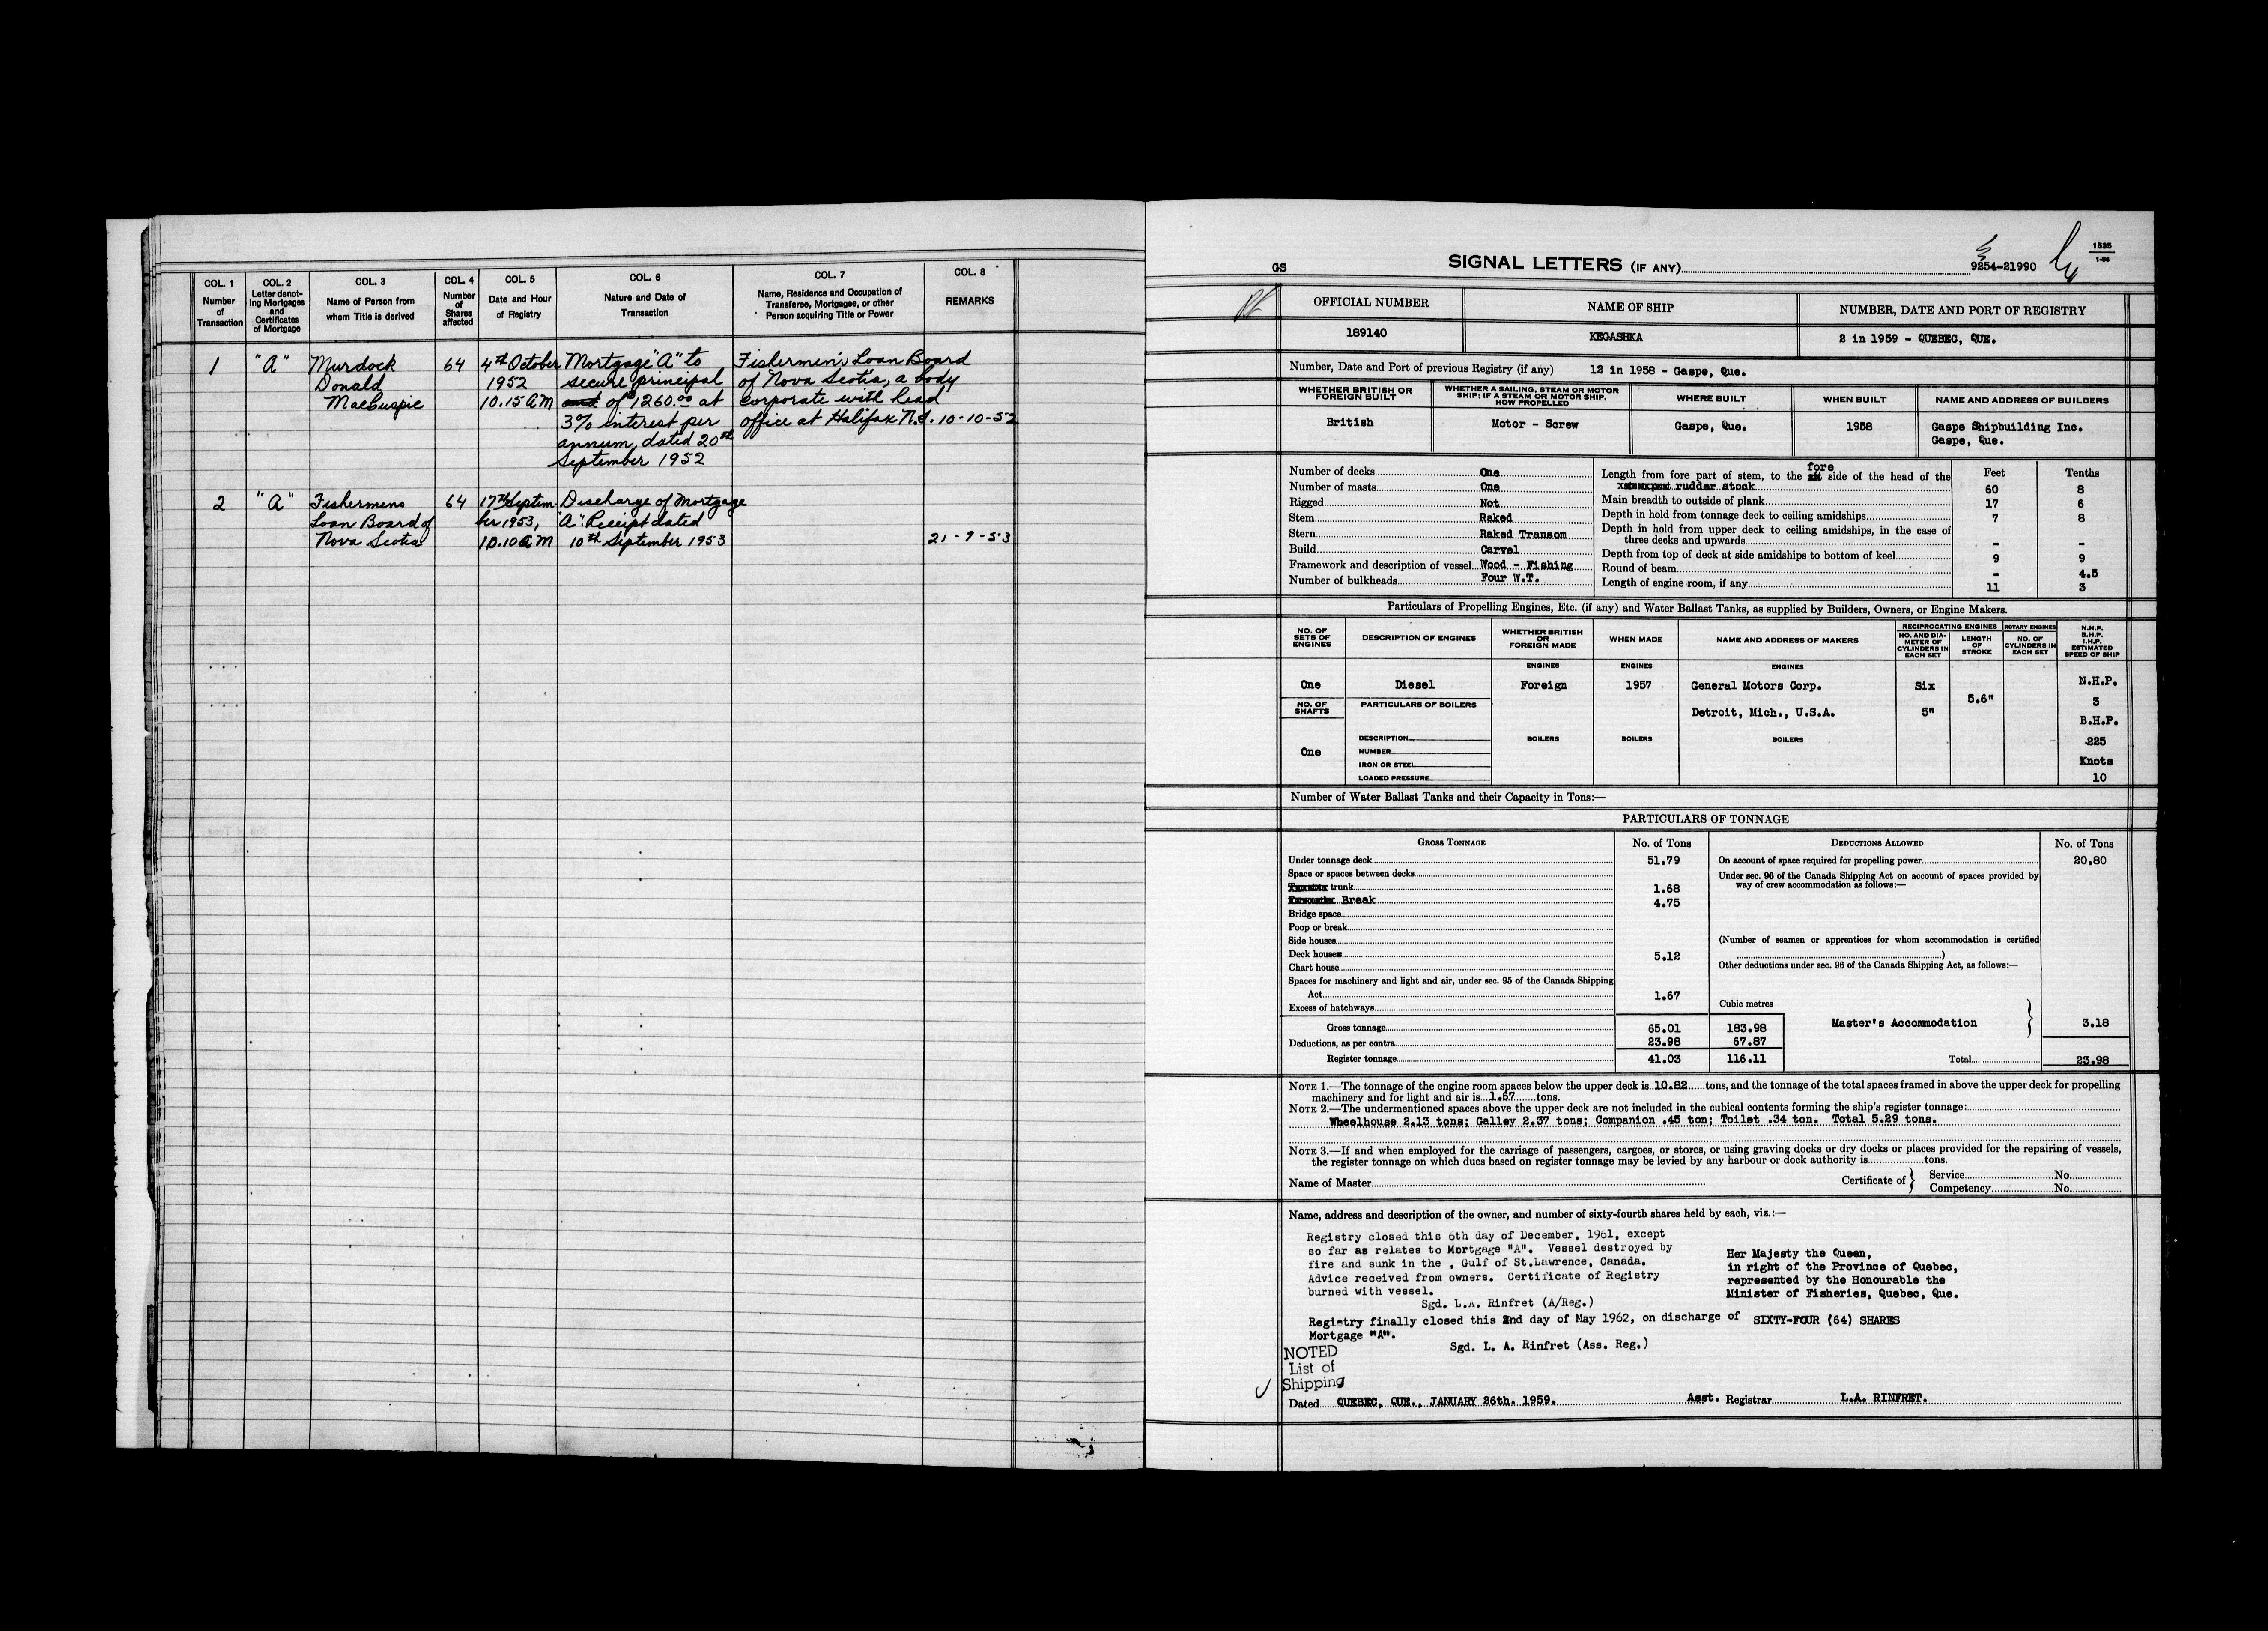 COL. 1 COL. 2 COL. 3 COL. 4 COL. 5 COL. 6 COL. 7 COL. 8
Number of Transaction
Letter denoting Mortgages and Certificates of Mortgage
Name of Person from whom Title is derived
Number of Shares affected
Date and Hour of Registry
Nature and Date of Transaction
Name, Residence and Occupation of Transferee, Mortgagee, or other Person acquiring Title or Power
REMARKS
1 "A" Murdock 64 4th October Mortgage "A" to Fishermen's Loan Board
Donald 1952 secure principal of Nova Scotia, a body
MacCuspic 10.15 AM of 1260.00 at corporate with head
3% interest per office at Halifax N.S. 10-10-52
annum, dated 20th
September 1952
2 "A" Fishermens 64 17th Septem- Discharge of Mortgage
Loan Board of ber 1953, "A". Receipt dated
Nova Scotia 10.10 AM 10th September 1953 21-9-53
1535
1-56
GS SIGNAL LETTERS (IF ANY) 9254-21990
OFFICIAL NUMBER NAME OF SHIP NUMBER, DATE AND PORT OF REGISTRY
189140 KEGASHKA 2 in 1959 - QUEBEC, QUE.
Number, Date and Port of previous Registry (if any) 12 in 1958 - Gaspe, Que.
WHETHER BRITISH OR FOREIGN BUILT
WHETHER A SAILING, STEAM OR MOTOR SHIP; IF A STEAM OR MOTOR SHIP, HOW PROPELLED
WHERE BUILT WHEN BUILT NAME AND ADDRESS OF BUILDERS
British Motor - Screw Gaspe, Que. 1958 Gaspe Shipbuilding Inc.
Gaspe, Que.
Number of decks One
Number of masts One
Rigged Not
Stem Raked
Stern Raked Transom
Build Carvel
Framework and description of vessel Wood - Fishing
Number of bulkheads Four W.T.
Feet Tenths
fore
Length from fore part of stem, to the side of the head of the
rudder stock 60 8
Main breadth to outside of plank 17 6
Depth in hold from tonnage deck to ceiling amidships 7 8
Depth in hold from upper deck to ceiling amidships, in the case of
three decks and upwards - -
Depth from top of deck at side amidships to bottom of keel 9 9
Round of beam - 4.5
Length of engine room, if any 11 3
Particulars of Propelling Engines, Etc. (if any) and Water Ballast Tanks, as supplied by Builders, Owners, or Engine Makers.
NO. OF SETS OF ENGINES
DESCRIPTION OF ENGINES
WHETHER BRITISH OR FOREIGN MADE
WHEN MADE
NAME AND ADDRESS OF MAKERS
RECIPROCATING ENGINES ROTARY ENGINES
NO. AND DIAMETER OF CYLINDERS IN EACH SET
LENGTH OF STROKE
NO. OF CYLINDERS IN EACH SET
N.H.P. B.H.P. I.H.P. ESTIMATED SPEED OF SHIP
ENGINES ENGINES ENGINES
One Diesel Foreign 1957 General Motors Corp. Six N.H.P.
5.6" 3
NO. OF SHAFTS PARTICULARS OF BOILERS Detroit, Mich., U.S.A. 5" B.H.P.
DESCRIPTION BOILERS BOILERS BOILERS 225
One NUMBER
IRON OR STEEL Knots
LOADED PRESSURE 10
Number of Water Ballast Tanks and their Capacity in Tons:—
PARTICULARS OF TONNAGE
GROSS TONNAGE No. of Tons DEDUCTIONS ALLOWED No. of Tons
Under tonnage deck 51.79
Space or spaces between decks
trunk 1.68
Break 4.75
Bridge space
Poop or break
Side houses
Deck house 5.12
Chart house
Spaces for machinery and light and air, under sec. 95 of the Canada Shipping
Act 1.67
Excess of hatchways Cubic metres
Gross tonnage 65.01 183.98
Deductions, as per contra 23.98 67.87
Register tonnage 41.03 116.11
On account of space required for propelling power 20.80
Under sec. 96 of the Canada Shipping Act on account of spaces provided by
way of crew accommodation as follows:—
(Number of seamen or apprentices for whom accommodation is certified
)
Other deductions under sec. 96 of the Canada Shipping Act, as follows:—
Master's Accommodation 3.18
Total 23.98
NOTE 1.—The tonnage of the engine room spaces below the upper deck is 10.82 tons, and the tonnage of the total spaces framed in above the upper deck for propelling
machinery and for light and air is 1.67 tons.
NOTE 2.—The undermentioned spaces above the upper deck are not included in the cubical contents forming the ship's register tonnage:
Wheelhouse 2.13 tons; Galley 2.37 tons; Companion .45 ton; Toilet .34 ton. Total 5.29 tons.
NOTE 3.—If and when employed for the carriage of passengers, cargoes, or stores, or using graving docks or dry docks or places provided for the repairing of vessels,
the register tonnage on which dues based on register tonnage may be levied by any harbour or dock authority is tons.
Name of Master Certificate of Service No.
Competency No.
Name, address and description of the owner, and number of sixty-fourth shares held by each, viz.:—
Registry closed this 6th day of December, 1961, except
so far as relates to Mortgage "A". Vessel destroyed by
fire and sunk in the , Gulf of St.Lawrence, Canada.
Advice received from owners. Certificate of Registry
burned with vessel.
Sgd. L.A. Rinfret (A/Reg.)
Her Majesty the Queen,
in right of the Province of Quebec,
represented by the Honourable the
Minister of Fisheries, Quebec, Que.
Registry finally closed this 2nd day of May 1962, on discharge of
Mortgage "A".
SIXTY-FOUR (64) SHARES
Sgd. L. A. Rinfret (Ass. Reg.)
NOTED
List of
Shipping
Dated QUEBEC, QUE., JANUARY 26th. 1959. Asst. Registrar L.A. RINFRET.